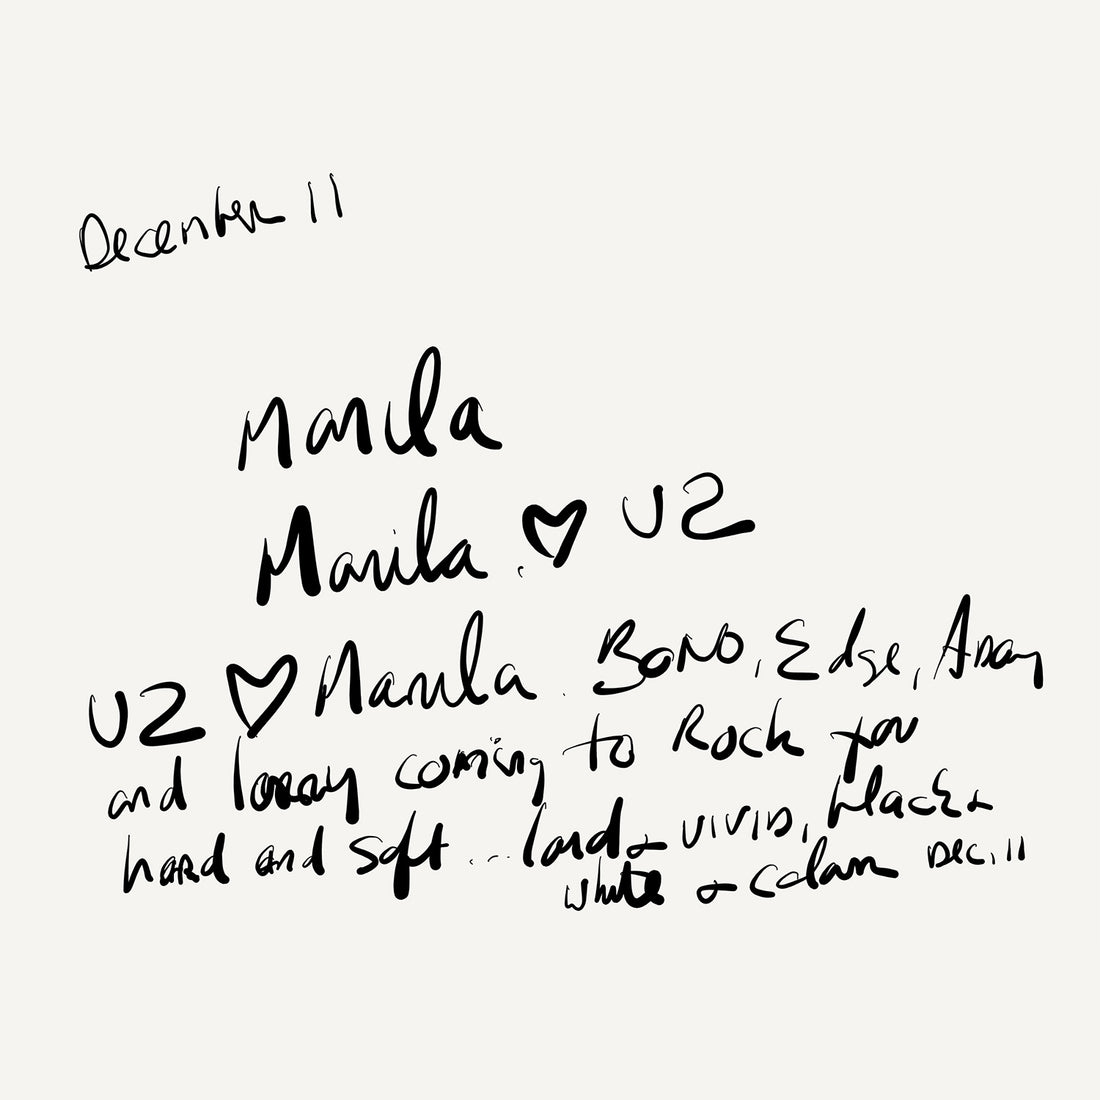 December 11
Manila
Manila. ♥ U2
U2 ♥ Manila. BONO, Edge, Adam
and Larry coming to Rock you
hard and soft... loud & VIVID, black &
white & Colour DEC. 11